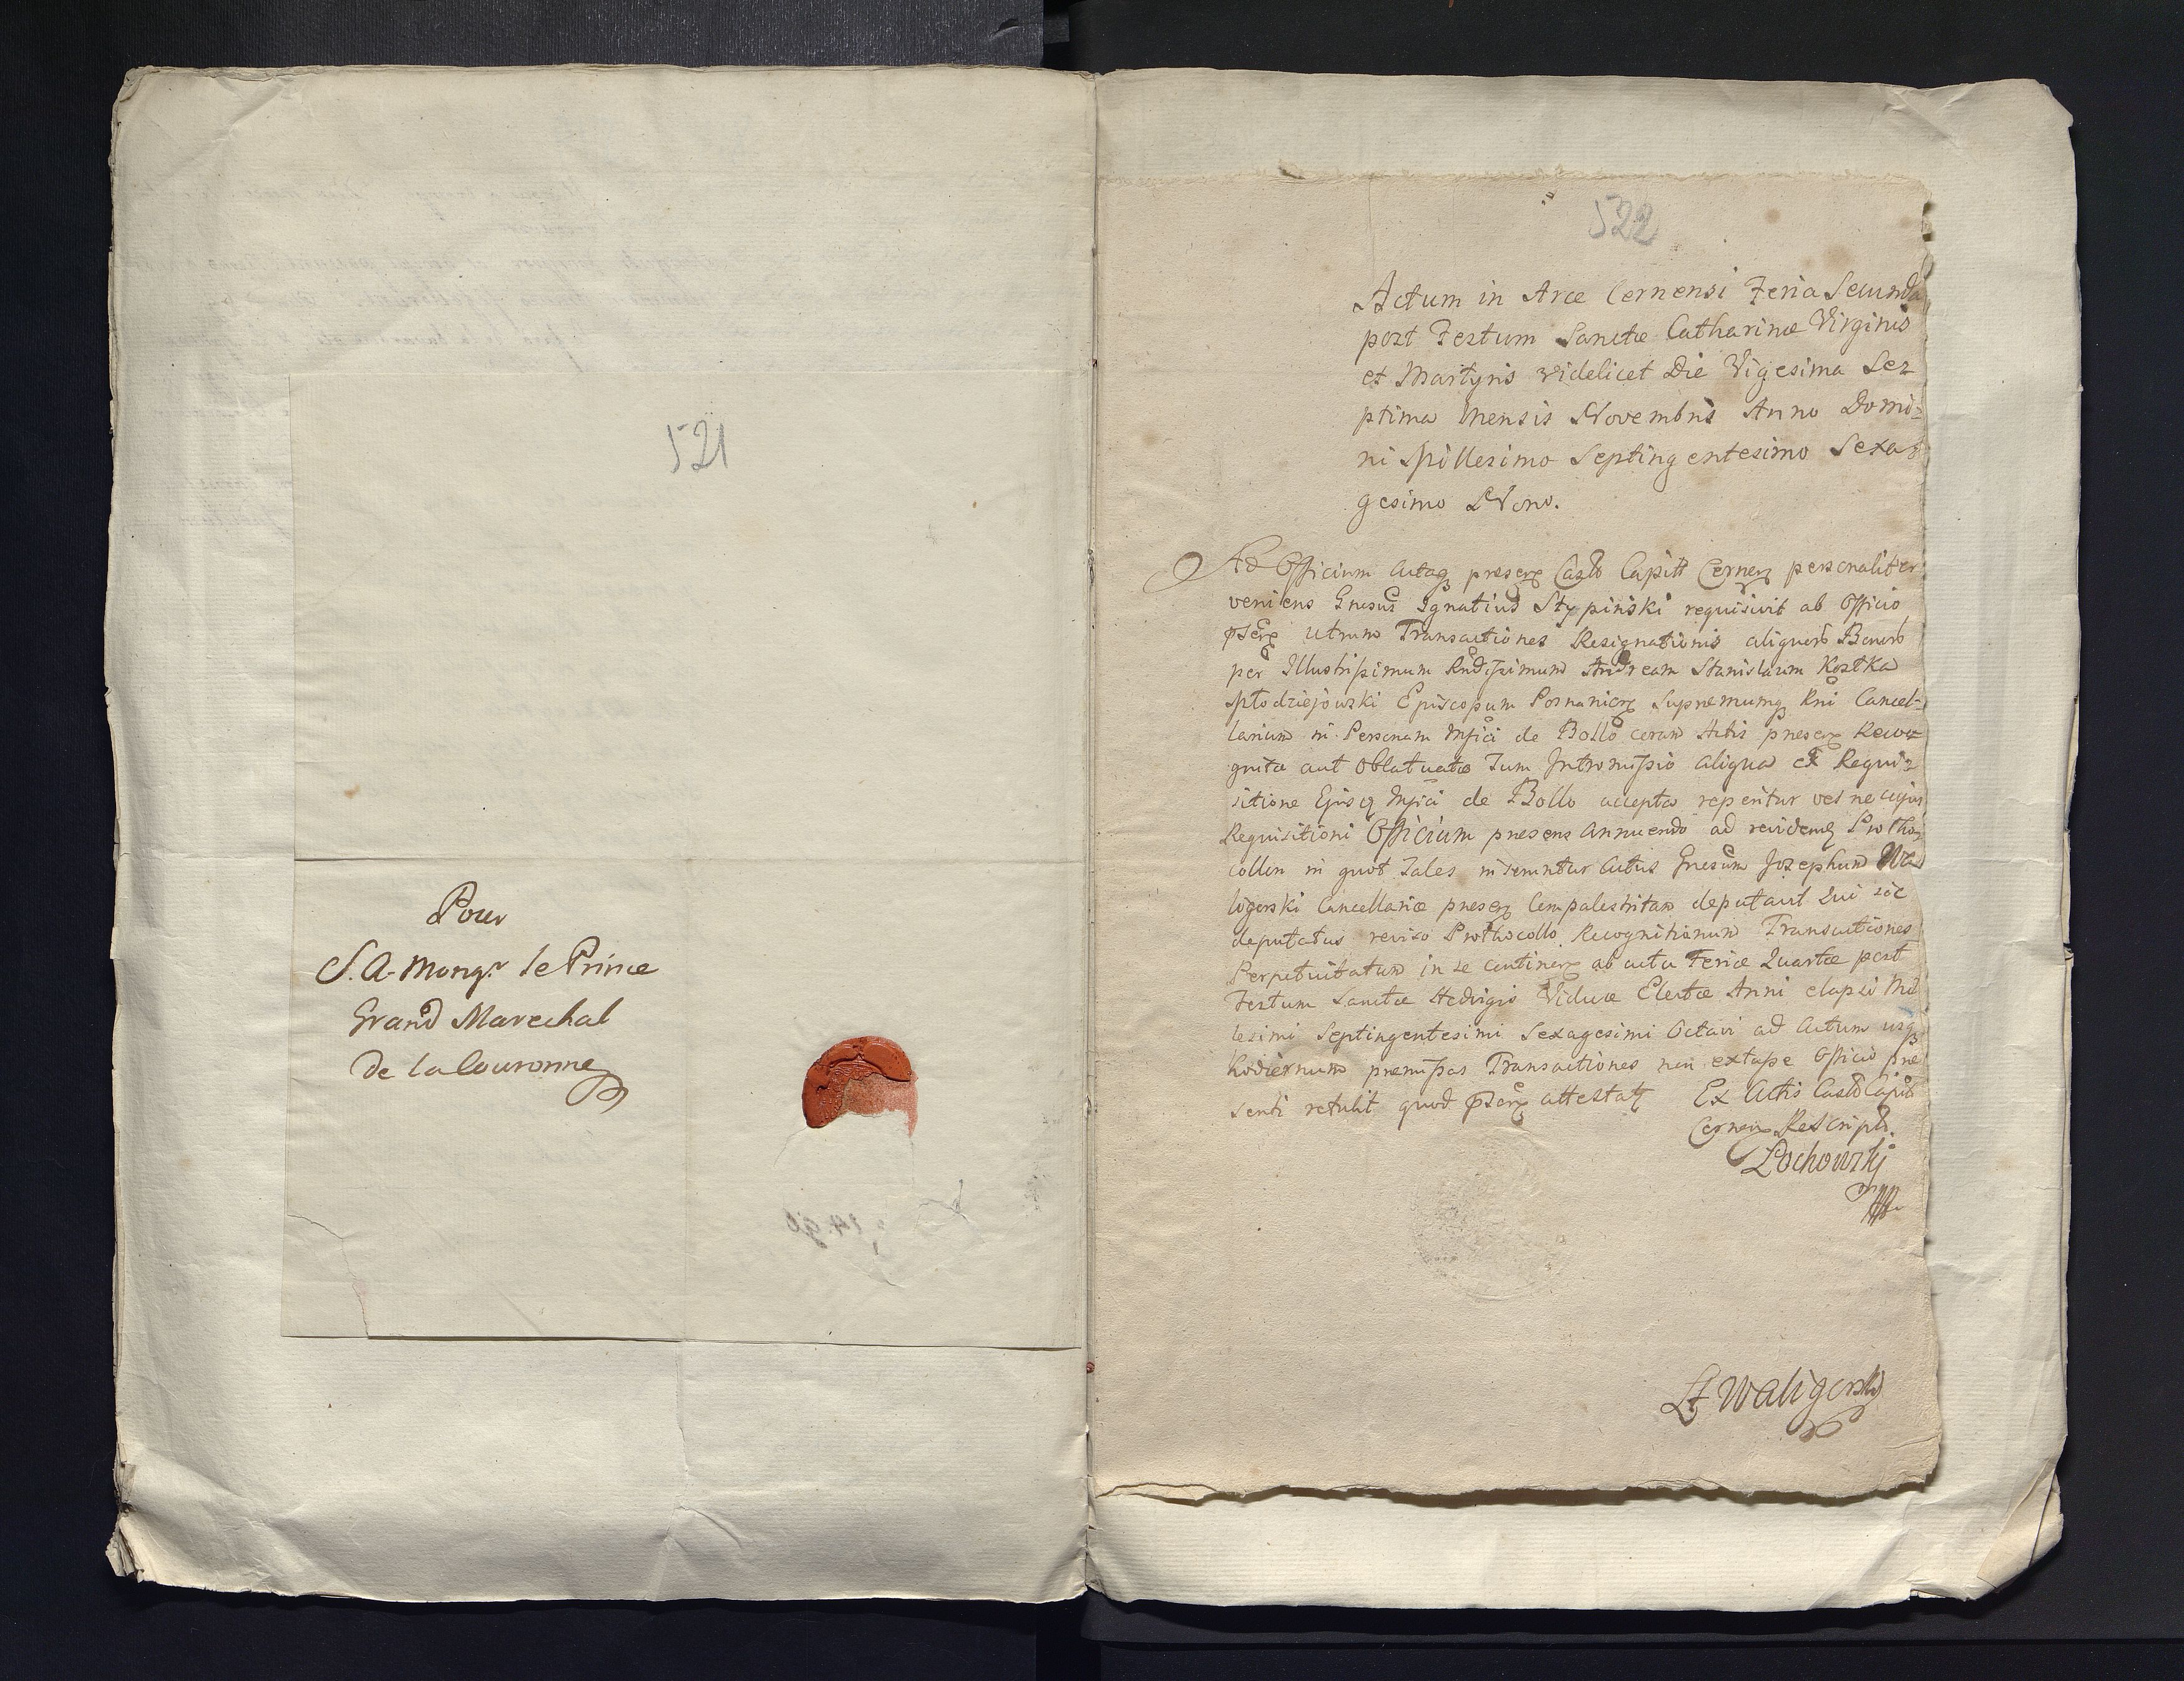 521
Pour
S. A. Mongr. le Prince
Grand Marechal
de la Couronne
522
Actum in Arce Cernensi Feria Secunda
post Festum Sanctæ Catharinæ Virginis
et Martyris videlicet Die Vigesima Se=
ptima Mensis Novembris Anno Domi=
ni Millesimo Septingentesimo Sexa=
gesimo Nono.
Ad Officium Actaq presen Castr Capitt Cernen personaliter
veniens Gnesus Ignatius Stypiński requisivit ab Officio
pten utrum Transactiones Resignationis aliquorb Bonorb
per Illustrissimum Rndissimum Andream Stanislaum Kostka
Młodziejowski Episcopum Posnanien Supremumq Rni Cancel=
larium in Personam Mfici de Bollo coram Actis presen Reco
gnitæ aut Oblatuatæ Tum Intromissio aliqua ex Requi=
sitione Ejusq Mfici de Bollo accepta reperitur vel ne cujus
Requisitioni Officium presens annuendo ad reviden Protho
collon in quot Tales inseruntur Actus Gnesum Josephum Wa
ligorski Cancellariæ presen Compalestritam deputavit Qui sic
deputatus reviso Prothocollo Recognitionum Transactiones
Perpetuitatum in se continen ab actu Feriæ Quartæ post
Festum Sanctæ Hedvigis Viduæ Electæ Anni elapsi Mil
lesimi Septingentesimi Sexagesimi Octavi ad Actum usq
hodiernum premissas Transactiones non extasse Officio pre
senti retulit quod pten attestat Ex Actis Castr Capit
Cernen Rescript.
Łochowski
mpp
Lt Waligorski